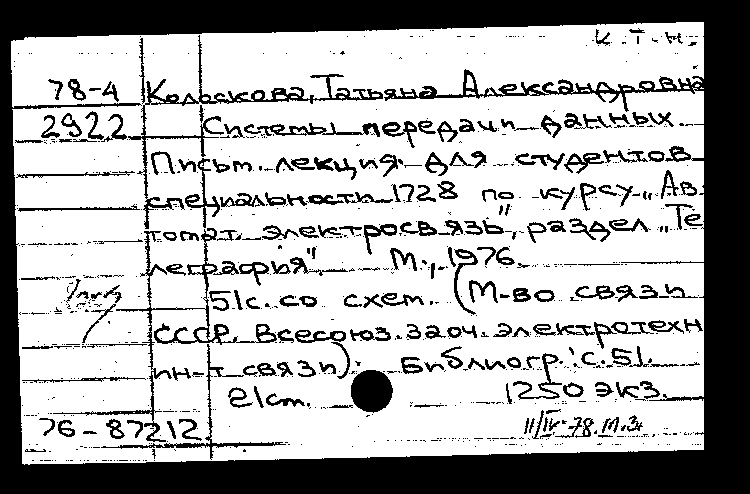 К.Т.Н.
78-4 Колоскова, Татьяна Александровна
2922 Системы передачи данных.
Письм. лекция. Для студентов
специальности 1728 по курсу „Ав-
томат. электросвязь", раздел „Те
леграфия". М., 1976.
51с. со схем. (М-во связи
СССР. Всесоюз. заоч. электротехн
ин-т связи). Библиогр.: с. 51.
21см. 1250 экз.
76-87212 11/IV-78.